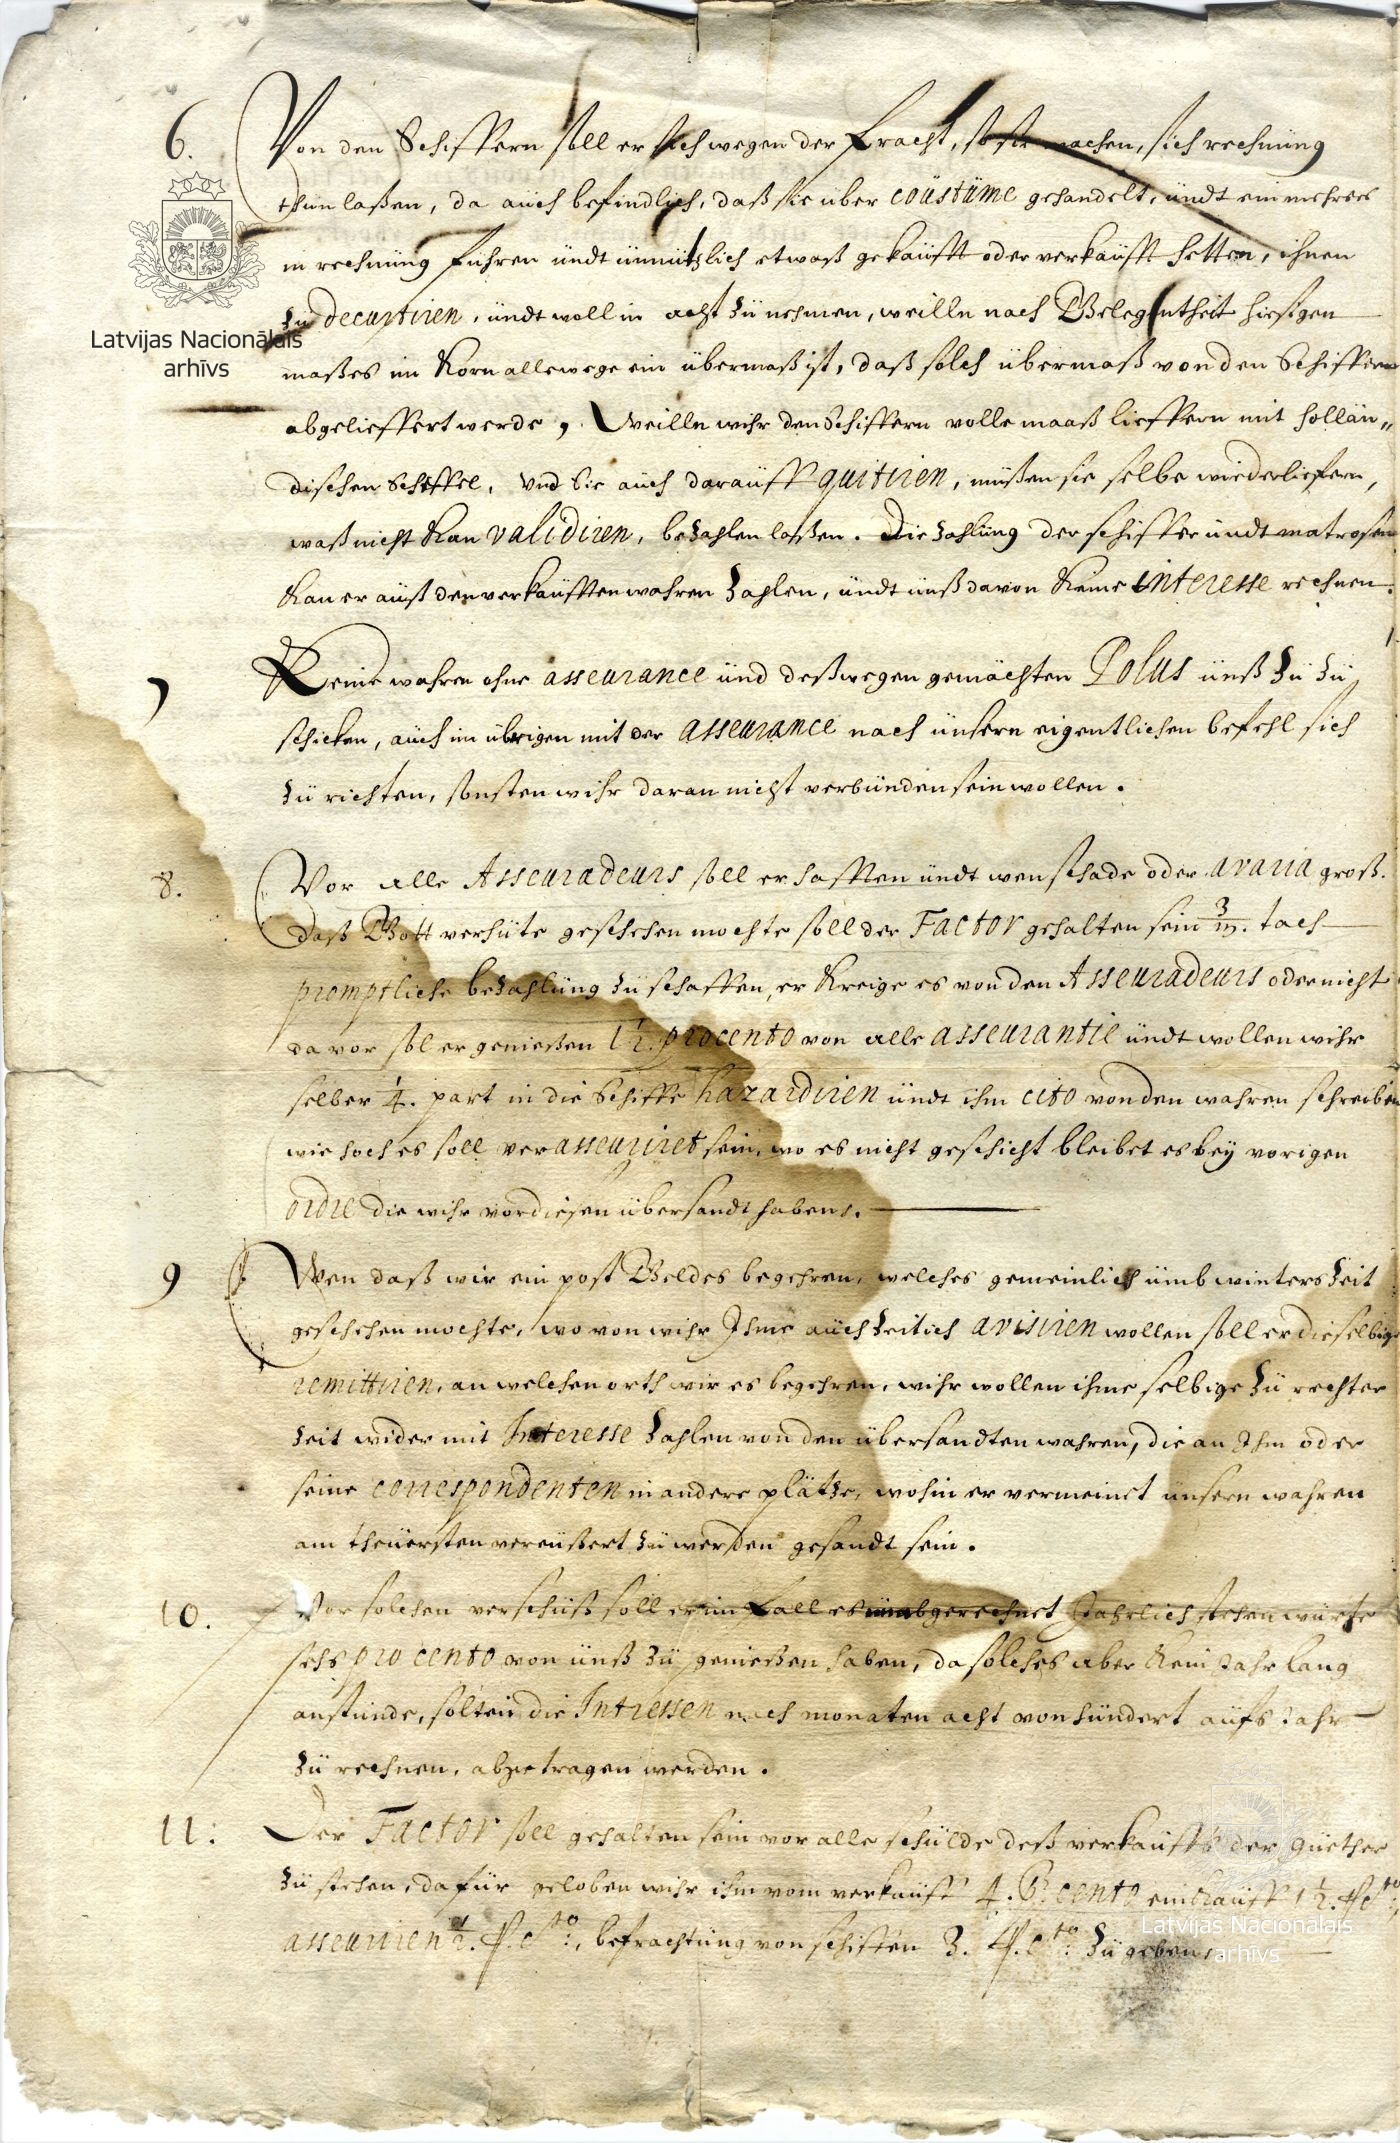 6. Von den Schiffern soll er sich wegen der Fracht, so sie machen, sich rechnüng
thün laßen, da aüch befindlich, daß sie über coústüme gehandelt, ündt ein mehres
in rechnüng führen ündt ünnützlich etwaß gekaüfft oder verkaüfft hetten, ihnen
zü decurtiren, ündt woll in acht zü nehmen, weilln nach Gelegentheit hiesigen
maßes im Korn allewege ein übermaß ist, daß solch übermaß von den Schiffern
abgelieffert werde, Weilln wihr den Schiffern volle maaß lieffern mit hollän„
dischen Scheffel, Vnd Sie aüch daraüff quitiren, müßen sie selbe wiederliefern,
waß nicht Kan validiren, bezahlen laßen. Die Zahlüng der schiffer ündt matrosen
Kan er aüß den verkaüfften wahren Zahlen, ündt ünß davon Keine interesse rechnen.
7 Keine wahren ohne asseurance ünd deßwegen gemachten Polus ünß Zü Zü
schicken, aüch im übrigen mit der asseurance nach ünsern eigentlichen befehl sich
Zü richten, sonsten wihr daran nicht verbünden sein wollen.
8. Vor alle Asseuradeurs soll er hafften ündt wen schade oder avaria groß.
daß Gott verhüte geschehen mochte soll der Factor gehalten sein 3/m. tach
promptliche bezahlüng Zü schaffen, er Kreige es von den Asseuradeurs oder nicht
davor sol er genießen 1 1/2. procento von alle asseurantie ündt wollen wihr
selber 1/4. part in die Schiffe hazardiren ündt ihm cito von den wahren schreiben
wie hoch es soll verasseuriret sein, wo es nicht geschicht bleibet es beÿ vorigen
ordre die wihr vordiesen übersandt haben.
9 Wen daß wir ein post Geldes begehren, welches gemeinlich ümb winters Zeit
geschehen mochte, wovon wihr Ihme aüch Zeitich avisiren wollen soll er dieselbige
remittiren, an welchen orth wir es begehren, wihr wollen ihme selbige Zü rechter
Zeit wider mit Interesse Zahlen von den übersandten wahren, die an Ihm oder
seine correspondenten in andere plätze, wohin er vermeinet ünsern wahren
am theüersten vereüßert Zü werden gesandt sein.
10. Vor solchen verschüß soll er im Fall es abgerechnet Jahrlich stehen würde
sechs procento von ünß Zü genießen haben, da solches aber Kein Jahr lang
anstünde, solten die Intressen nach monaten acht von hündert aüfs Jahr
Zü rechnen, abgetragen werden.
11: Der Factor soll gehalten sein vor alle schülde deß verkaüffs der güether
Zü stehen, dafür geloben wihr ihm vom verkaüff 4. Procento einkaüff 1 1/2. P cto:,
asseuriren 1/2. P. cto:, befrachtüng von schiffen 3. P. cto: Zü geben.
Latvijas Nacionālais
arhīvs
Latvijas Nacionālais
arhīvs